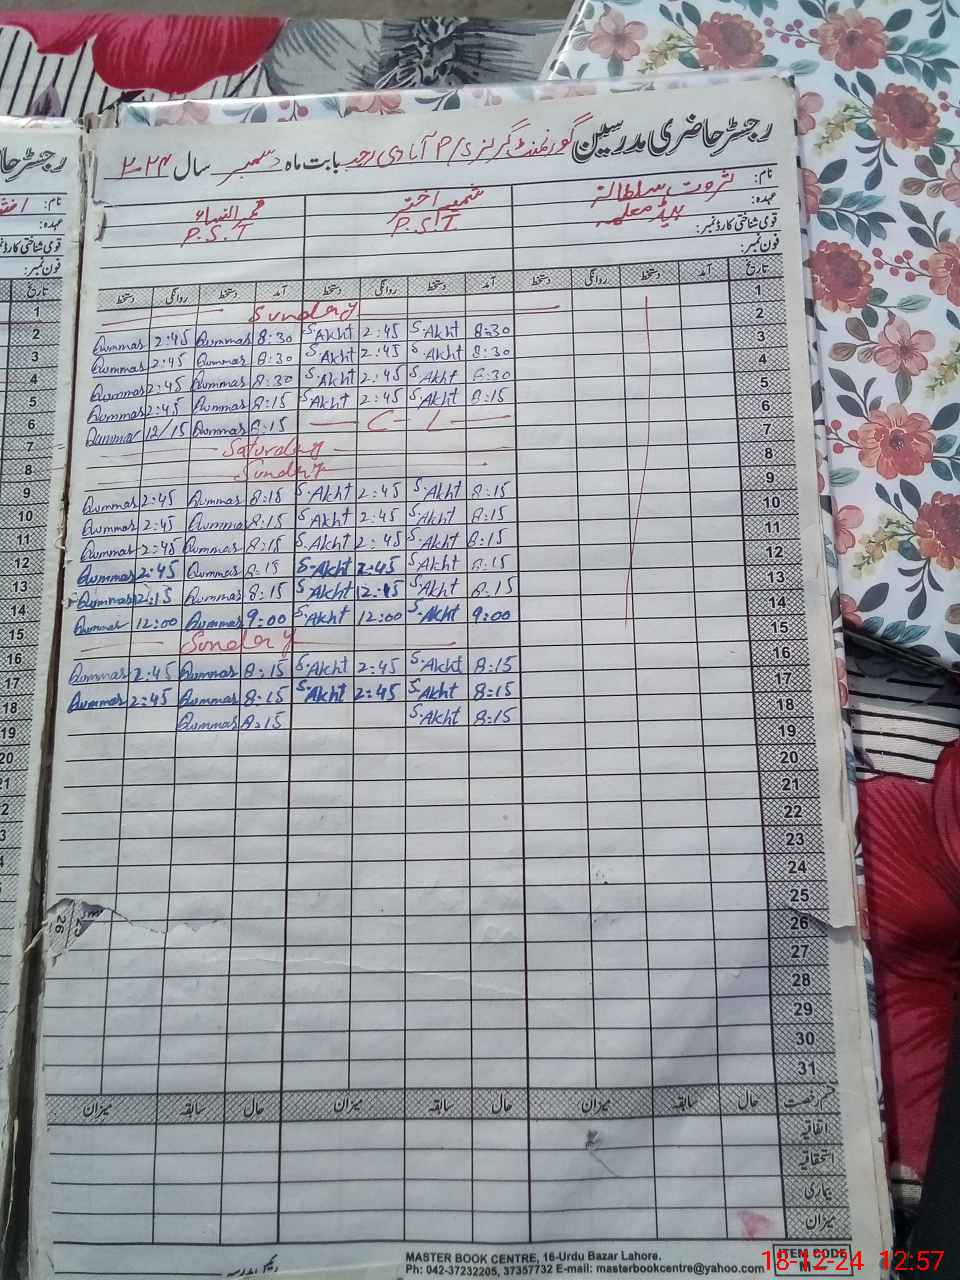 رجسٹر حاضری مدرسین گورنمنٹ گرلز آبادی بابت ماہ دسمبر سال ۲۰۲۴
نام: ثروت سلطانہ شمیم اختر قمر النساء
عہدہ: ہیڈ معلمہ P.S.T P.S.T
قومی شناختی کارڈ نمبر:
فون نمبر:
تاریخ آمد دستخط روانگی دستخط آمد دستخط روانگی دستخط آمد دستخط روانگی دستخط
1 Sunday
2 8:30 S.Akht 2:45 S.Akht 8:30 Qummar 2:45 Qummar
3 8:30 S.Akht 2:45 S.Akht 8:30 Qummar 2:45 Qummar
4 8:30 S.Akht 2:45 S.Akht 8:30 Qummar 2:45 Qummar
5 8:15 S.Akht 2:45 S.Akht 8:15 Qummar 2:45 Qummar
6 C-L 8:15 Qummar 12/15 Qummar
7 Saturday
8 Sunday
9 8:15 S.Akht 2:45 S.Akht 8:15 Qummar 2:45 Qummar
10 8:15 S.Akht 2:45 S.Akht 8:15 Qummar 2:45 Qummar
11 8:15 S.Akht 2:45 S.Akht 8:15 Qummar 2:45 Qummar
12 8:15 S.Akht 2:45 S.Akht 8:15 Qummar 2:45 Qummar
13 8:15 S.Akht 12:15 S.Akht 8:15 Qummar 12:15 Qummar
14 9:00 S.Akht 12:00 S.Akht 9:00 Qummar 12:00 Qummar
15 Sunday
16 8:15 S.Akht 2:45 S.Akht 8:15 Qummar 2:45 Qummar
17 8:15 S.Akht 2:45 S.Akht 8:15 Qummar 2:45 Qummar
18 8:15 S.Akht 8:15 Qummar
19
20
21
22
23
24
25
26
27
28
29
30
31
قسم رخصت حال سابقہ میزان حال سابقہ میزان حال سابقہ میزان
اتفاقیہ
استحقاقیہ
بیماری
میزان
MASTER BOOK CENTRE, 16-Urdu Bazar Lahore.
Ph: 042-37232205, 37357732 E-mail: masterbookcentre@yahoo.com
ITEM CODE
18-12-24 12:57